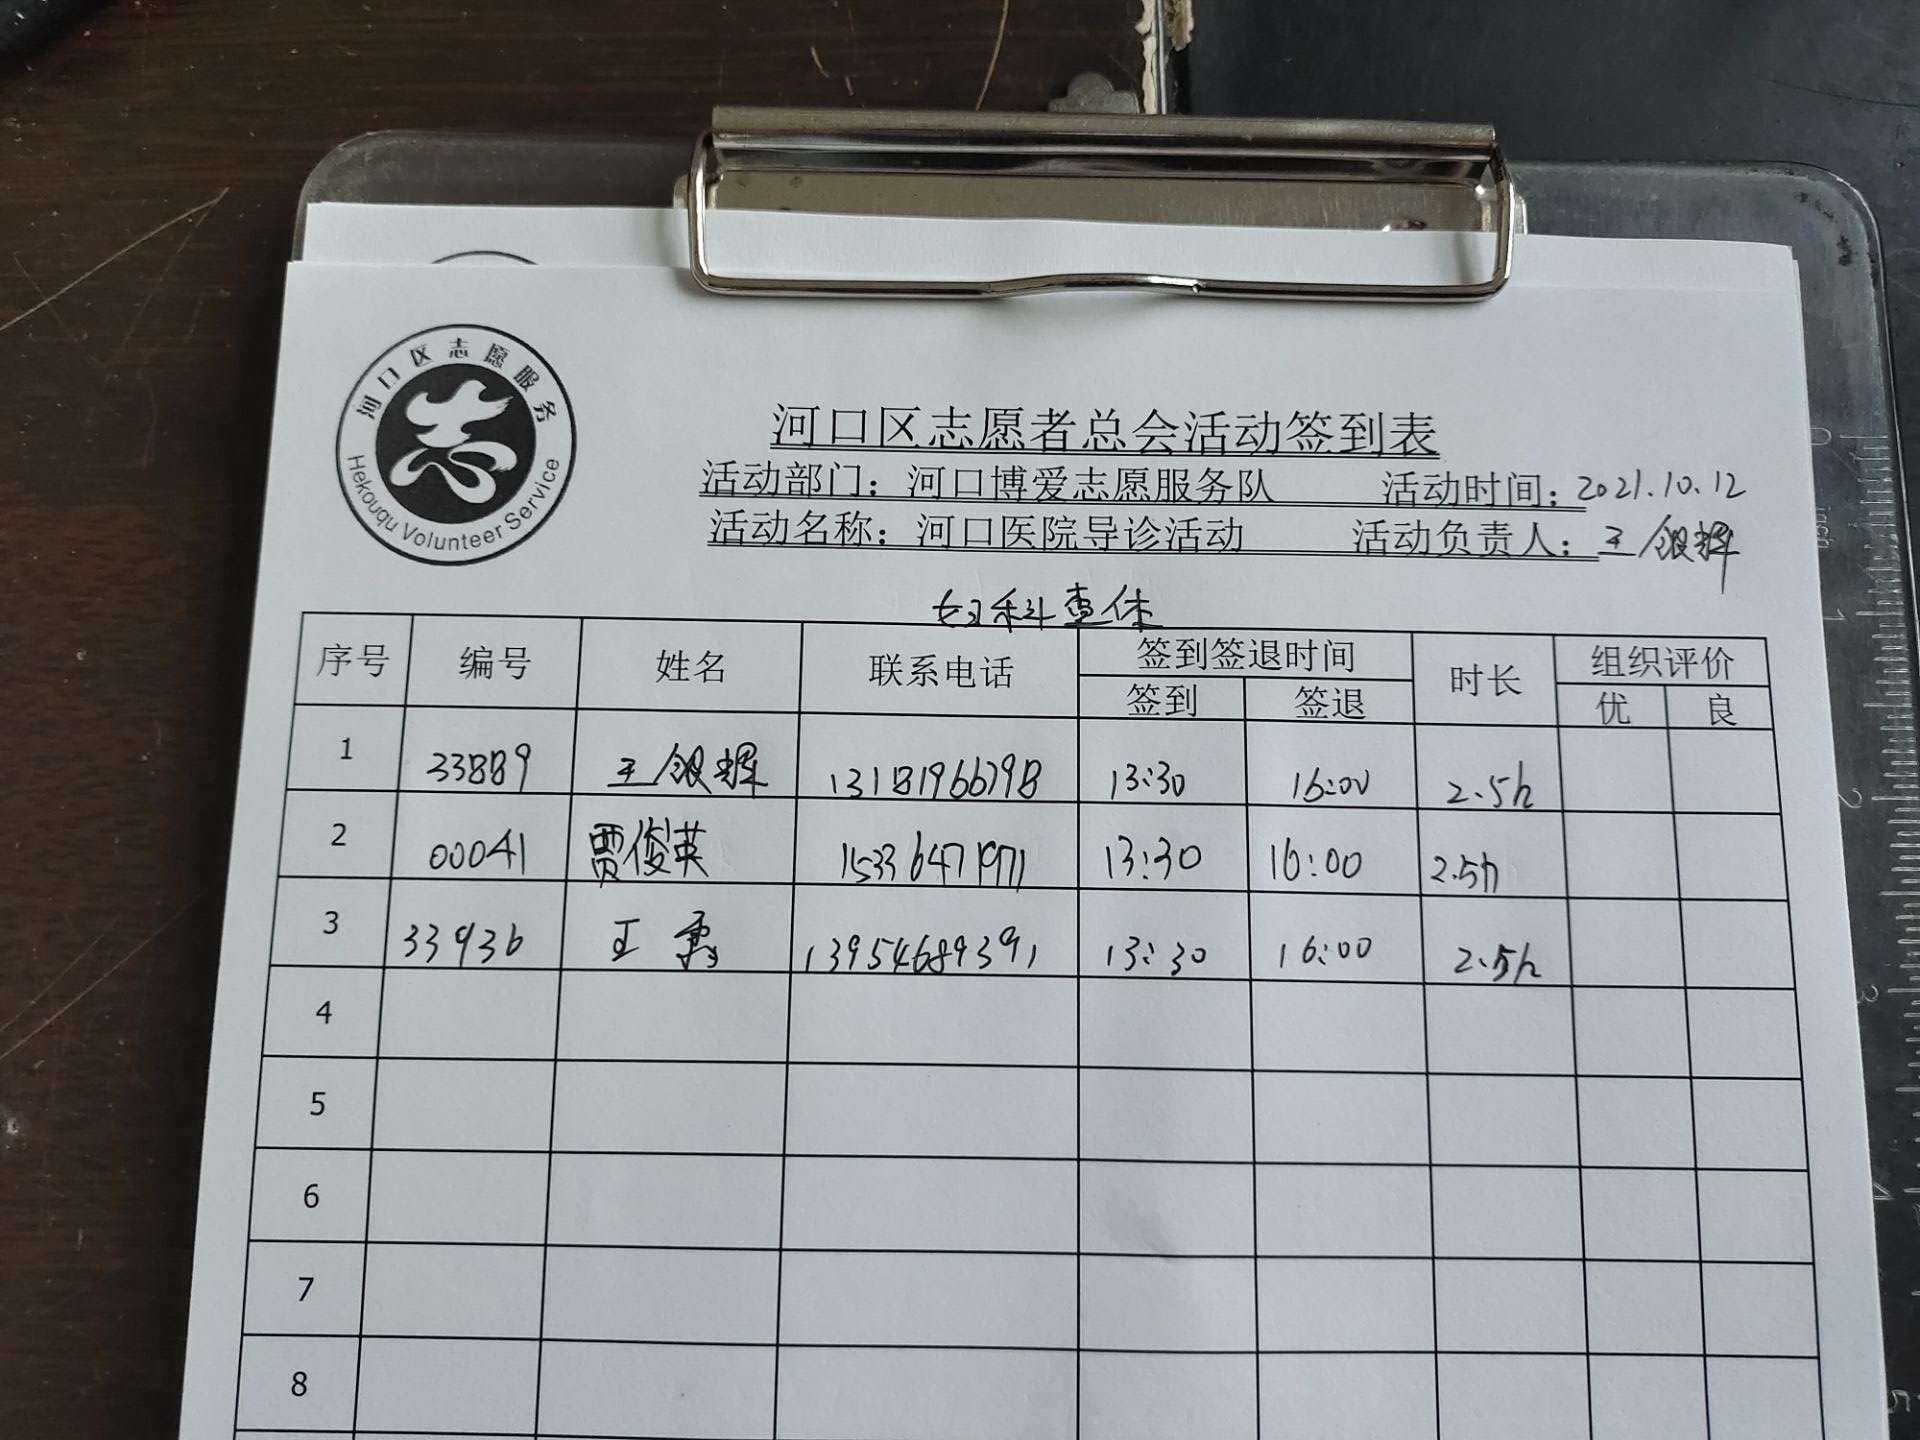 河口区志愿服务
Hekouqu Volunteer Service
河口区志愿者总会活动签到表
活动部门：河口博爱志愿服务队 活动时间：2021.10.12
活动名称：河口医院导诊活动 活动负责人：王银辉
妇科查体
序号 编号 姓名 联系电话 签到签退时间 时长 组织评价
签到 签退 优 良
1 33889 王银辉 13181966798 13:30 16:00 2.5h
2 00041 贾俊英 15336471971 13:30 16:00 2.5h
3 33936 王 13954689391 13:30 16:00 2.5h
4
5
6
7
8